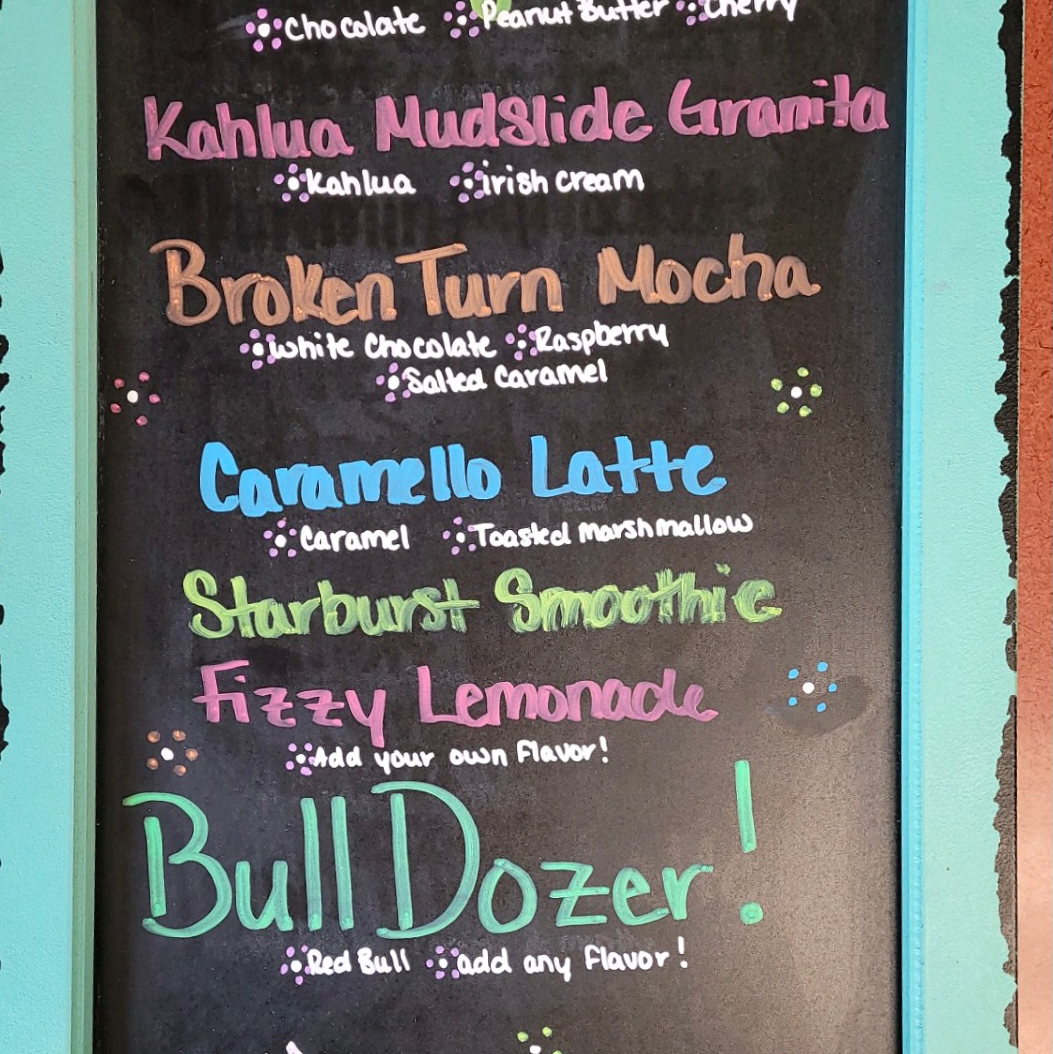 Chocolate Peanut Butter Cherry
Kahlua Mudslide Granita
Kahlua irish cream
Broken Turn Mocha
White Chocolate Raspberry
Salted Caramel
Caramello Latte
Caramel Toasted Marshmallow
Starburst Smoothie
Fizzy Lemonade
Add your own Flavor!
Bull Dozer!
Red Bull add any Flavor!